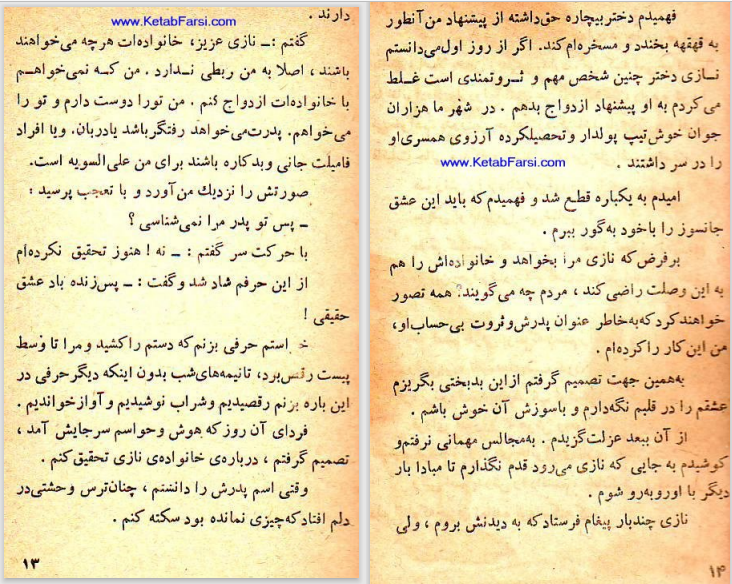 www.KetabFarsi.com
دارند .
گفتم :ـ نازی عزیز، خانواده‌ات هرچه می‌خواهند
باشند ، اصلا به من ربطی نـدارد . من کـه نمی‌خواهـم
با خانواده‌ات ازدواج کنم . من تورا دوست دارم و تو را
می‌خواهم. پدرت‌می‌خواهد رفتگرباشد یادربان. ویا افراد
فامیلت جانی وبدکاره باشند برای من علی‌السویه است.
صورتش را نزدیك من‌آورد و با تعجب پرسید :
ـ پس تو پدر مرا نمی‌شناسی ؟
با حرکت سر گفتم : ـ نه ! هنوز تحقیق نکرده‌ام
از این حرفم شاد شد وگفت : ـ پس‌زنده باد عشق
حقیقی !
خواستم حرفی بزنم‌که دستم راکشید و مرا تا وسط
پیست رقص‌برد، تانیمه‌های‌شب بدون اینکه دیگرحرفی در
این باره بزنم رقصیدیم وشراب نوشیدیم و آوازخواندیم .
فردای آن روزکه هوش وحواسم سرجایش آمد ،
تصمیم گرفتم ، درباره‌ی خانواده‌ی نازی تحقیق‌کنم .
وقتی اسم پدرش را دانستم ، چنان‌ترس وحشتی‌در
دلم افتادکه‌چیزی نمانده بود سکته کنم .
۱۳
فهمیدم دختربیچاره حق‌داشته از پیشنهاد من‌آنطور
به قهقهه بخندد و مسخره‌ام‌کند. اگر از روز اول‌می‌دانستم
نـازی دختر چنین شخص مهم و ثـروتمندی است غـلط
می‌کردم به او پیشنهاد ازدواج بدهم . در شهر ما هزاران
جوان خوش‌تیپ پولدار وتحصیلکرده آرزوی همسری‌او
را در سر داشتند .
www.KetabFarsi.com
امیدم به یکباره قطـع شد و فهمیدم‌که باید این عشق
جانسوز را باخود به‌گور ببرم .
برفرض‌که نازی مرا بخواهد و خانواده‌اش را هم
به این وصلت راضی‌کند ، مردم چه می‌گویند؟ همه تصور
خواهندکرد که‌به‌خاطر عنوان پدرش‌وثروت بی‌حساب‌او،
من این‌کار راکرده‌ام .
به‌همین جهت تصمیم گرفتم ازاین بدبختی بگریزم
عشقم را در قلبم نگه‌دارم و باسوزش آن خوش باشم .
از آن ببعد عزلت‌گزیدم . به‌مجالس مهمانی نرفتم‌و
کوشیدم به جایی که نازی می‌رود قدم نگذارم تا مبادا بار
دیگر با اوروبه‌رو شوم .
نازی چندبار پیغام فرستادکه به دیدنش بروم ، ولی
۱۴